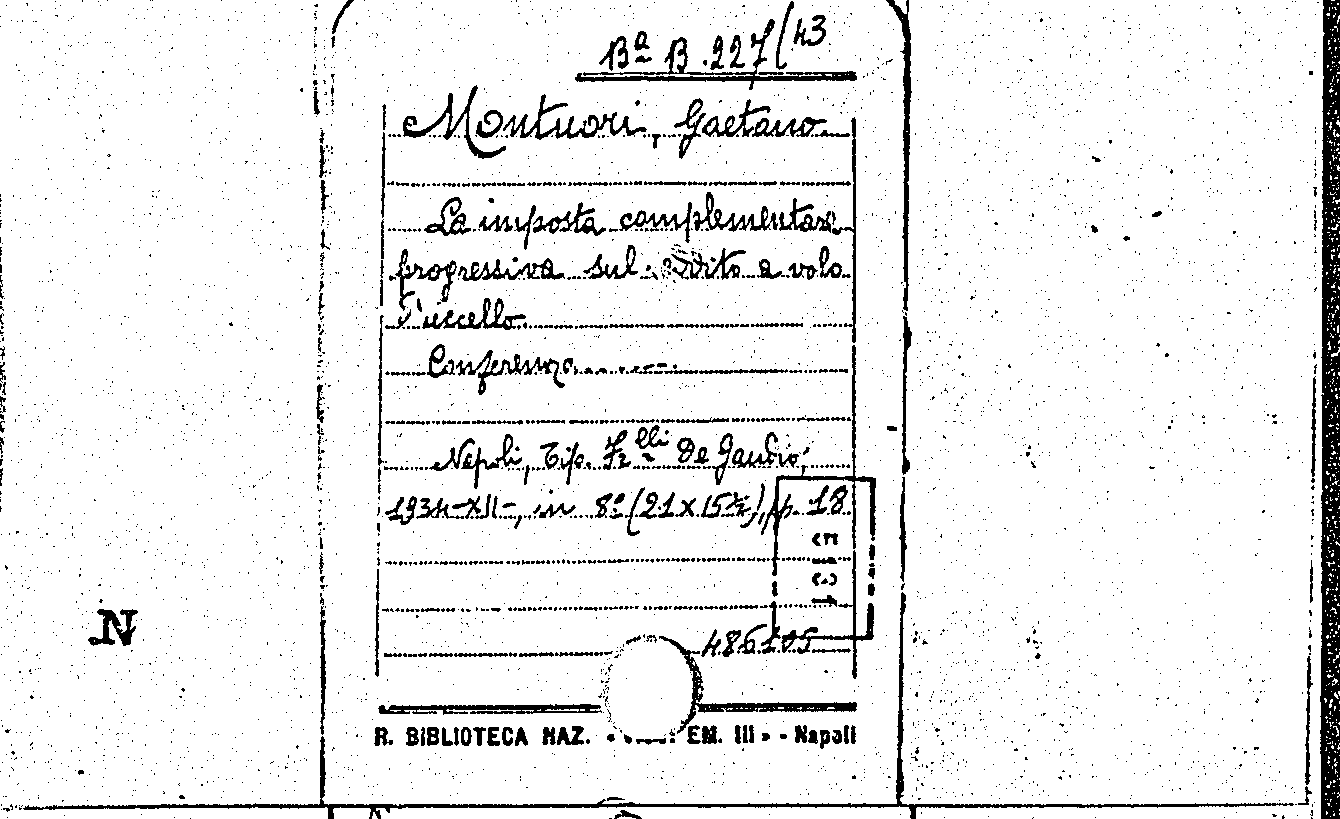 Bª B. 227/43
Montuori, Gaetano.
La imposta complementare
progressiva sul a volo
d'uccello.
Conferenza.......
Napoli, Tip. F.lli De Gaudio,
1934-XII-, in 8° (21x15½), pp. 18
486105
N
R. BIBLIOTECA NAZ. EM. III» - Napoli